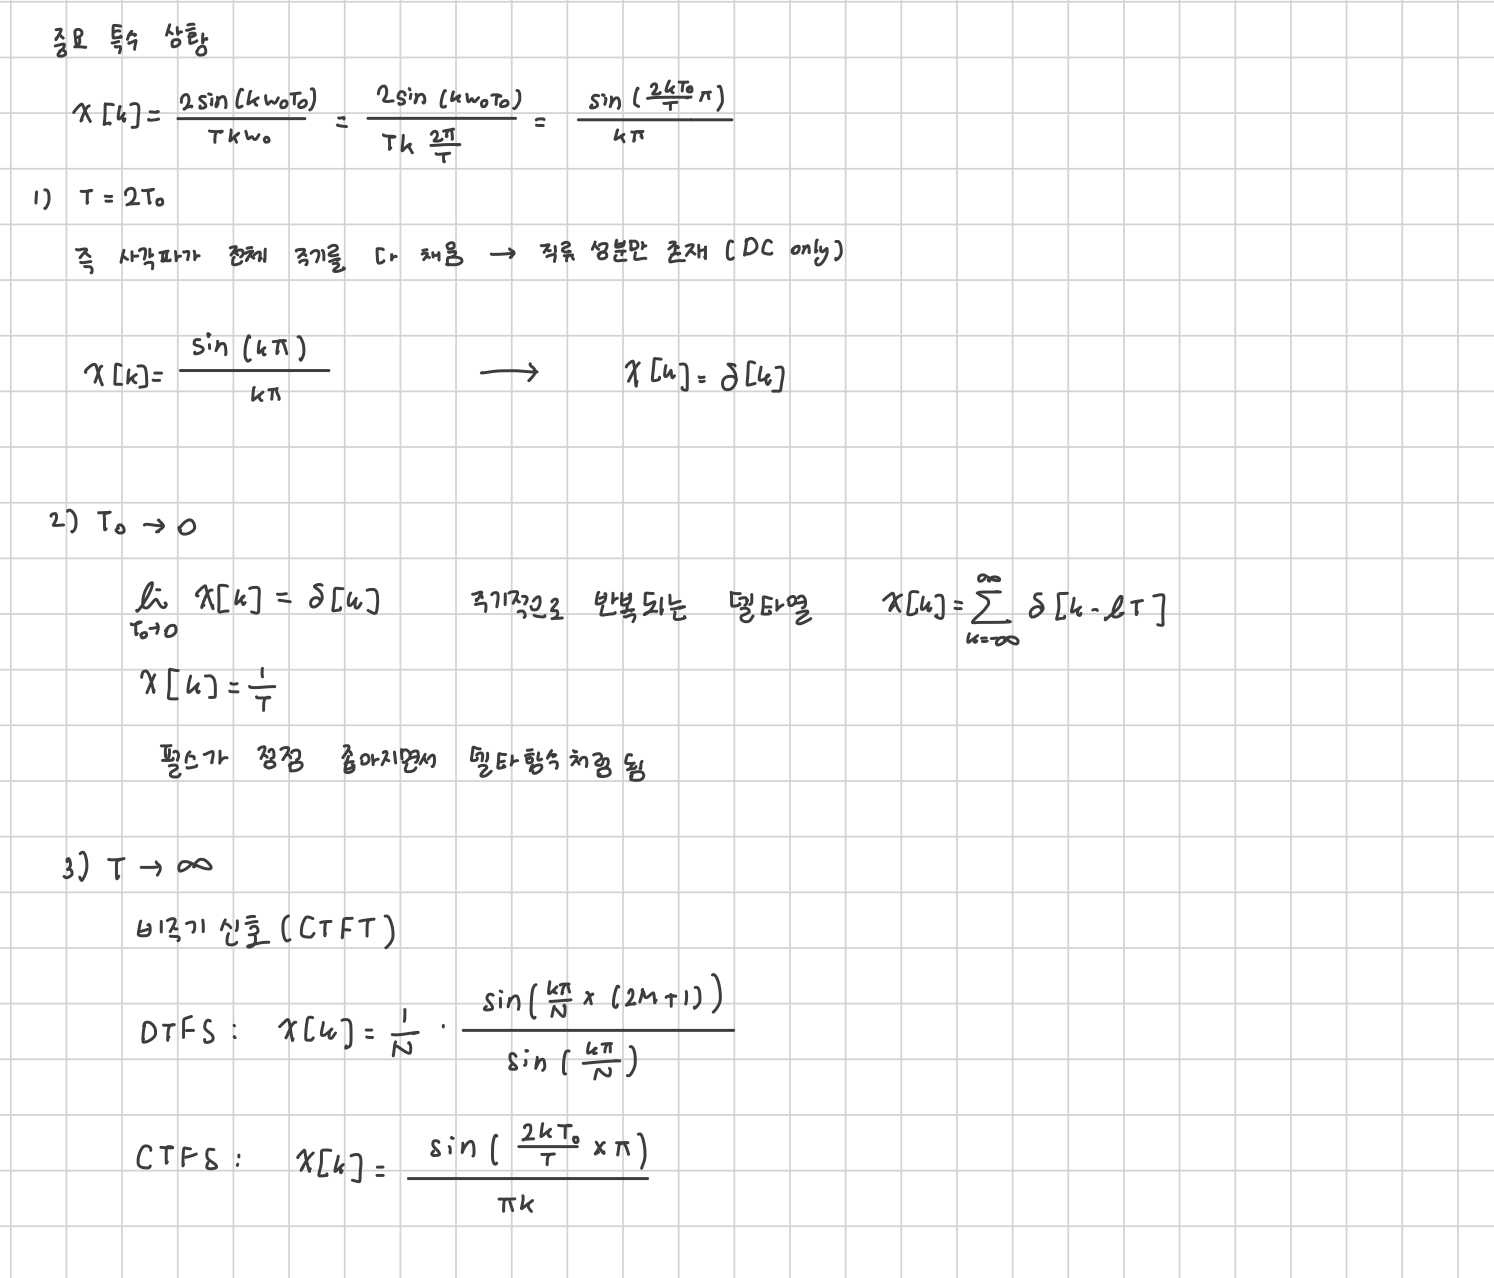 중요 특수 상황
X[k] = 2sin(kw₀T₀) / Tkw₀ = 2sin(kw₀T₀) / Tk 2π/T = sin(2kT₀/T π) / kπ
1) T = 2T₀
즉 사각파가 전체 주기를 다 채움 → 직류 성분만 존재 (DC only)
X[k] = sin(kπ) / kπ → X[k] = δ[k]
2) T₀ → 0
lim T₀→0 X[k] = δ[k] 주기적으로 반복되는 델타열 X[k] = ∑ k=-∞ ∞ δ[k-ℓT]
X[k] = 1/T
펄스가 점점 좁아지면서 델타함수처럼 됨
3) T → ∞
비주기 신호 (CTFT)
DTFS : X[k] = 1/N · sin(kπ/N × (2M+1)) / sin(kπ/N)
CTFS : X[k] = sin(2kT₀/T × π) / πk